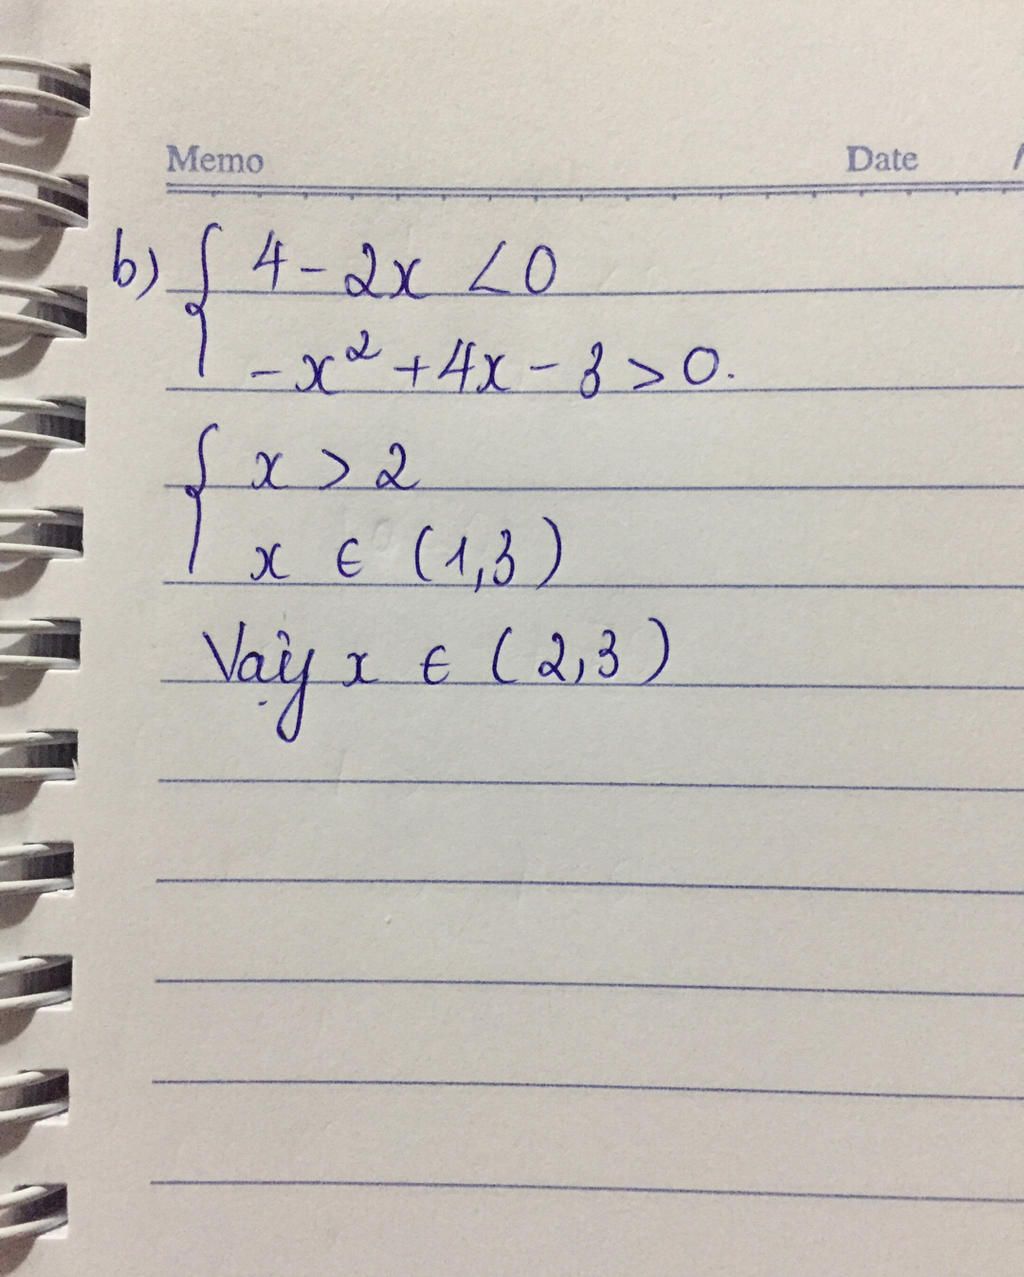 Memo Date
b) { 4 - 2x < 0
-x² + 4x - 3 > 0.
{ x > 2
x ∈ (1,3)
Vậy x ∈ (2,3)